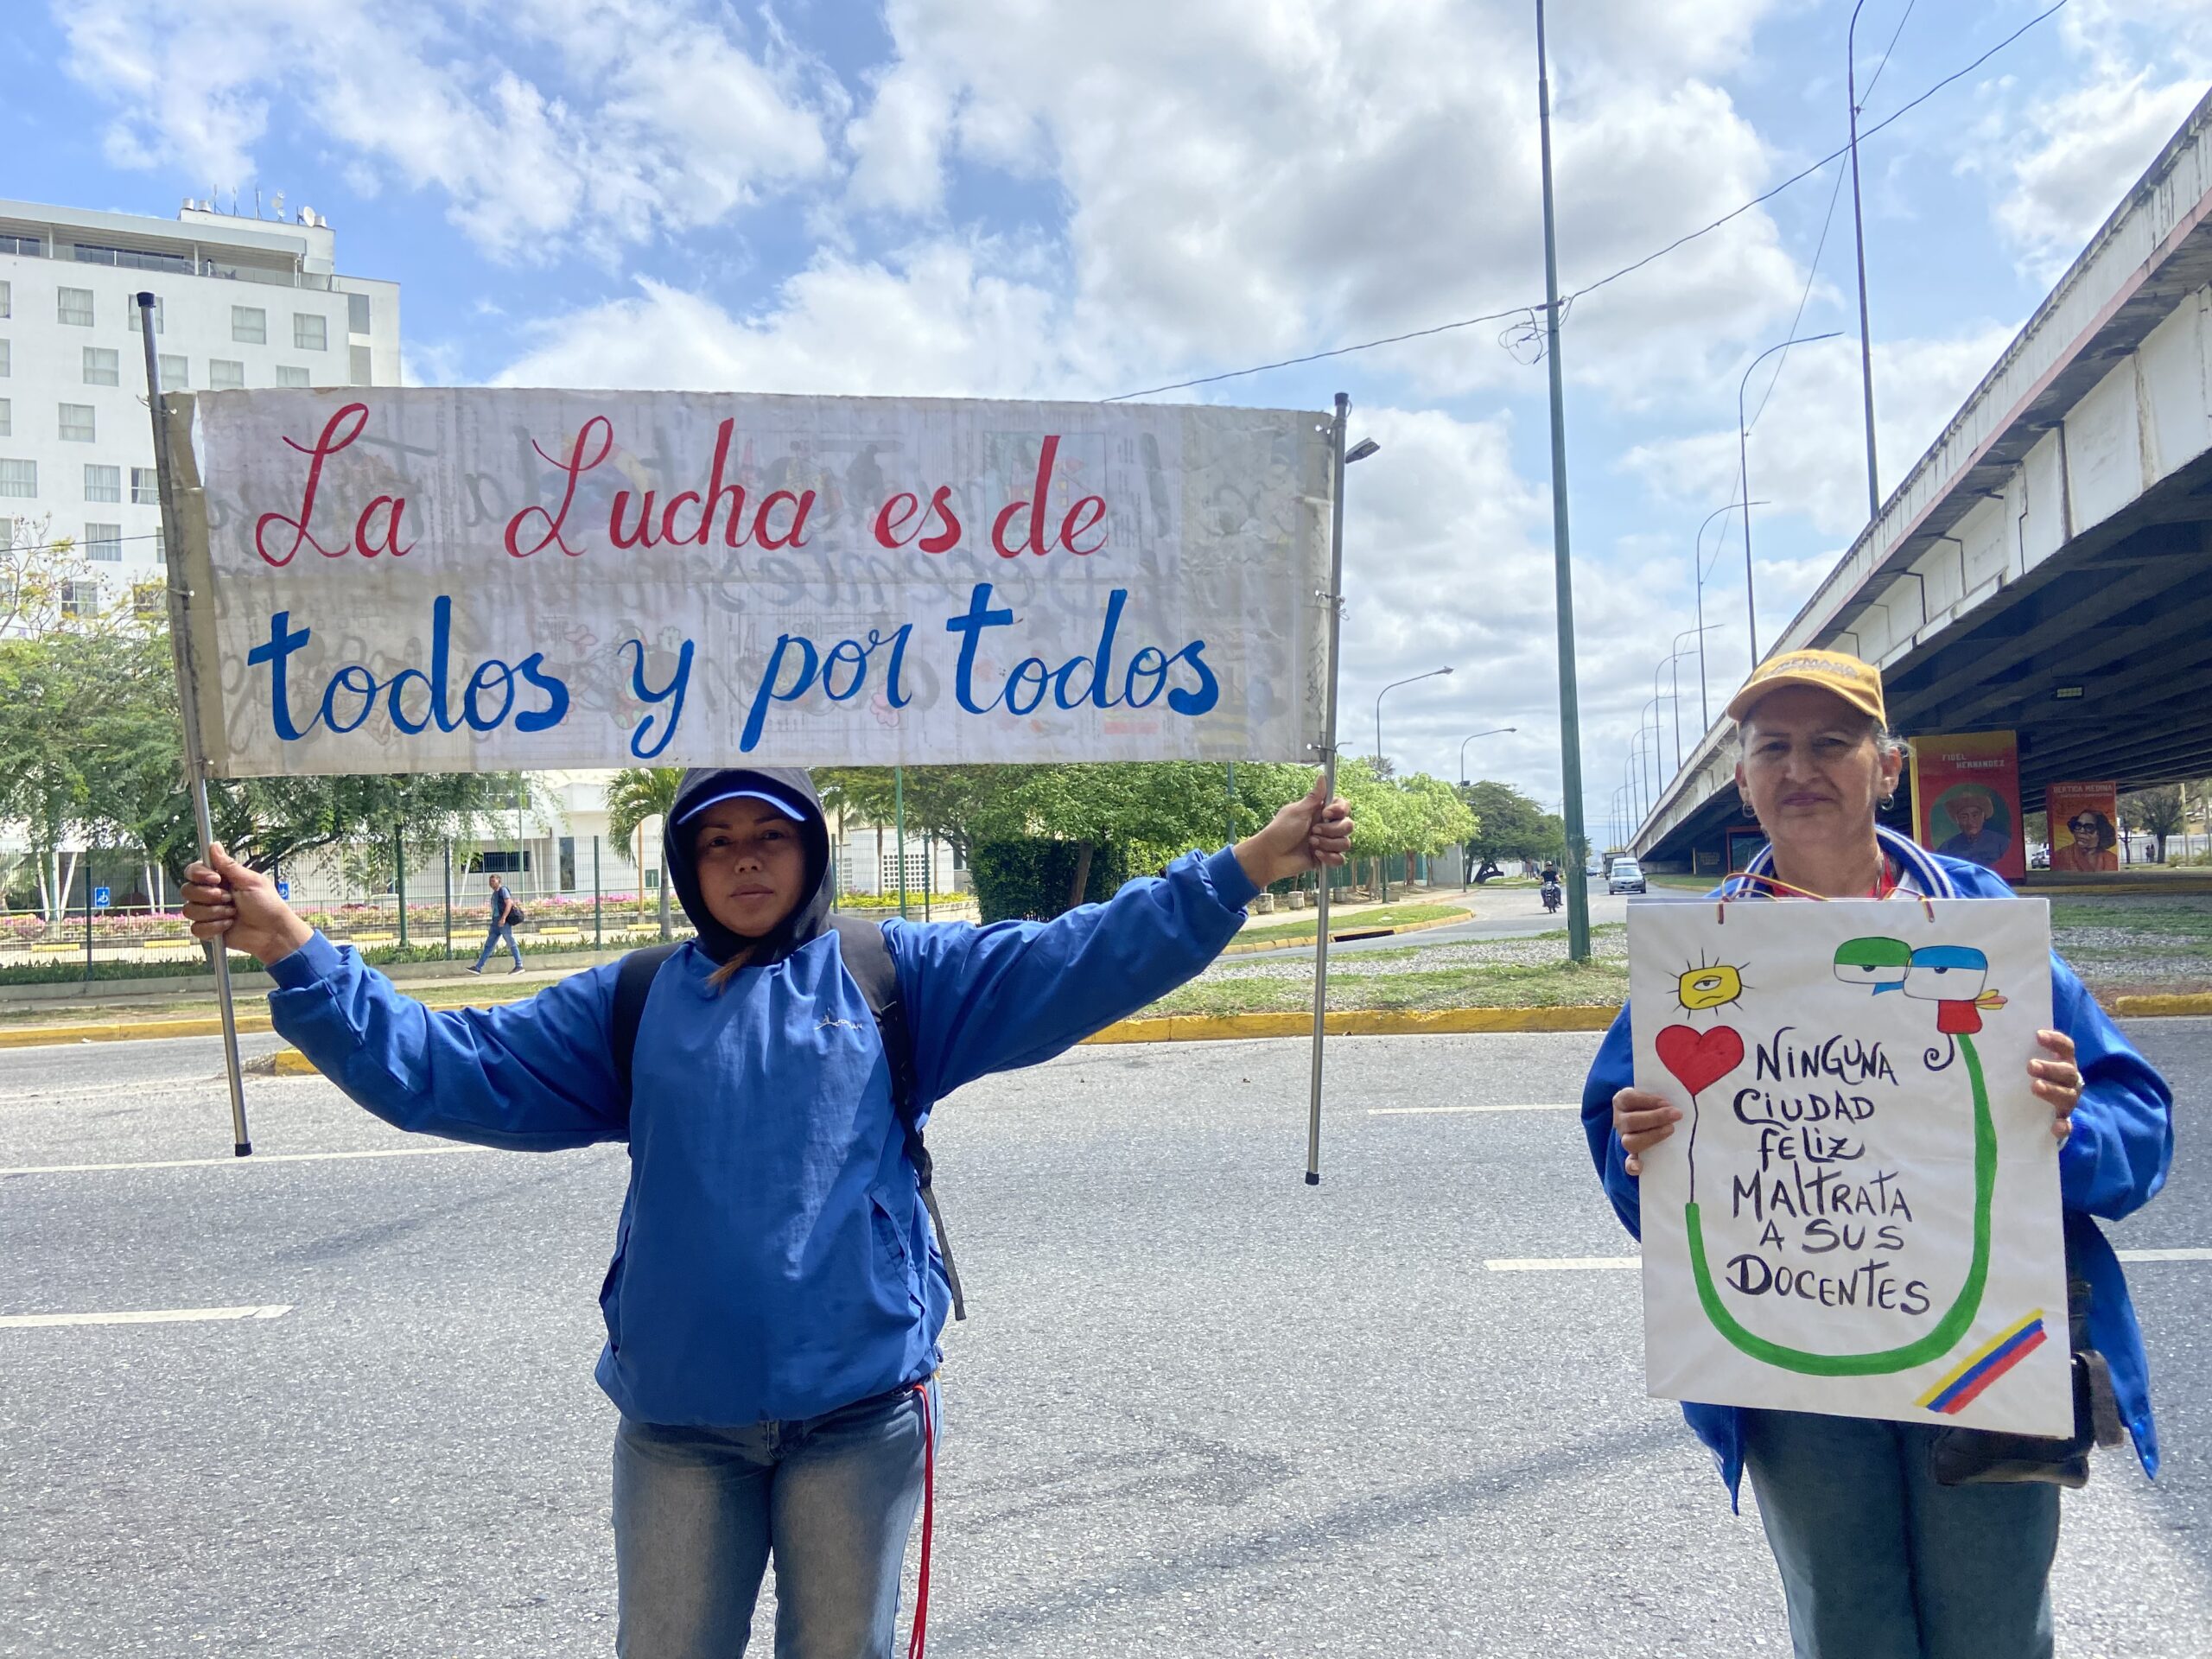 La Lucha es de
todos y por todos
NINGUNA
CIUDAD
FELIZ
MALTRATA
A SUS
DOCENTES
FIDEL
HERNÁNDEZ
BERTIDA MEDINA